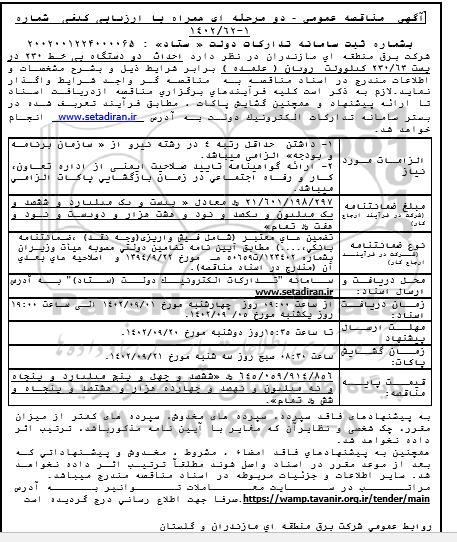 آگهی مناقصه عمومی - دو مرحله ای همراه با ارزیابی کیفی شماره
۱۴۰۲/۶۲-۱
بشماره ثبت سامانه تدارکات دولت « ستاد» : ۲۰۰۲۰۰۱۲۲۴۰۰۰۰۶۵
شرکت برق منطقه ای مازندران در نظر دارد احداث دو دستگاه بی خط ۲۳۰ در
پست ۲۳۰/۶۳ کیلوولت رویان ( علمده ) برابر شرایط ذیل و بشرح مشخصات و
اطلاعات مندرج در اسناد مناقصه به مناقصه گر واجد شرایط واگذار
نماید.لازم به ذکر است کلیه فرآیندهای برگزاری مناقصه ازدریافت اسناد
تا ارائه پیشنهاد و همچنین گشایش پاکات ، مطابق فرآیند تعریف شده در
بستر سامانه تدارکات الکترونیک دولت به آدرس www.setadiran.ir انجام
خواهد شد.
الزامات مورد نیاز
۱- داشتن حداقل رتبه ۴ در رشته نیرو از « سازمان برنامه
و بودجه» الزامی میباشد.
۲- ارائه گواهینامه تایید صلاحیت ایمنی از اداره تعاون،
کار و رفاه اجتماعی در زمان بازگشایی پاکات الزامی
میباشد.
مبلغ ضمانتنامه
(شرکت در فرآیند ارجاع کار)
۲۱/۶۰۱/۱۹۸/۲۹۷ معادل « بیست و یک میلیارد و ششصد و
یک میلیون و یکصد و نود و هشت هزار و دویست و نود و
هفت تمام»
نوع ضمانتنامه
(شرکت در فرآیند ارجاع کار)
تضمین های معتبر (شامل فیش واریزی(وجه نقد) ،ضمانتنامه
بانکی،....) مطابق آیین نامه تضامین دولتی مصوبه هیات وزیران
بشماره ۱۲۳۴۰۲/ت۵۰۶۵۹ هـ مورخ ۱۳۹۴/۹/۲۲ و اصلاحیه های بعدی
آن (مندرج در اسناد مناقصه).
محل دریافت و ارسال اسناد:
سامانه "تدارکات الکترونیک دولت (ستاد)" به آدرس
www.setadiran.ir
زمان دریافت اسناد:
از ساعت ۰۹:۰۰ روز چهارشنبه مورخ ۱۴۰۲/۰۹/۰۱ الی ساعت ۱۹:۰۰
روز یکشنبه مورخ ۱۴۰۲/۰۹/۰۵
مهلت ارسال پیشنهاد
تا ساعت ۱۵:۳۵روز دوشنبه مورخ ۱۴۰۲/۰۹/۲۰
زمان گشایش پاکات:
ساعت ۰۸:۳۰ صبح روز سه شنبه مورخ ۱۴۰۲/۰۹/۲۱
قیمت پایه مناقصه:
۶۴۵/۰۵۹/۹۱۴/۸۵۶ «ششصد و چهل و پنج میلیارد و پنجاه
و نه میلیون و نهصد و چهارده هزار و هشتصد و پنجاه و
شش تمام».
به پیشنهادهای فاقد سپرده، سپرده های مخدوش، سپرده های کمتر از میزان
مقرر، چک شخصی و نظایرآن که مغایر با آیین نامه مذکورباشد، ترتیب اثر
داده نخواهد شد.
همچنین به پیشنهادهای فاقد امضاء ، مشروط ، مخدوش و پیشنهاداتی که
بعد از موعد مقرر در اسناد واصل شوند مطلقاً ترتیب اثر داده نخواهد
شد. سایر اطلاعات و جزئیات مربوطه در اسناد مناقصه مندرج میباشد.
مراتب در سایت معاملات توانیر به آدرس
https://wamp.tavanir.org.ir/tender/main.صرفا جهت اطلاع رسانی درج گردیده است
روابط عمومی شرکت برق منطقه ای مازندران و گلستان